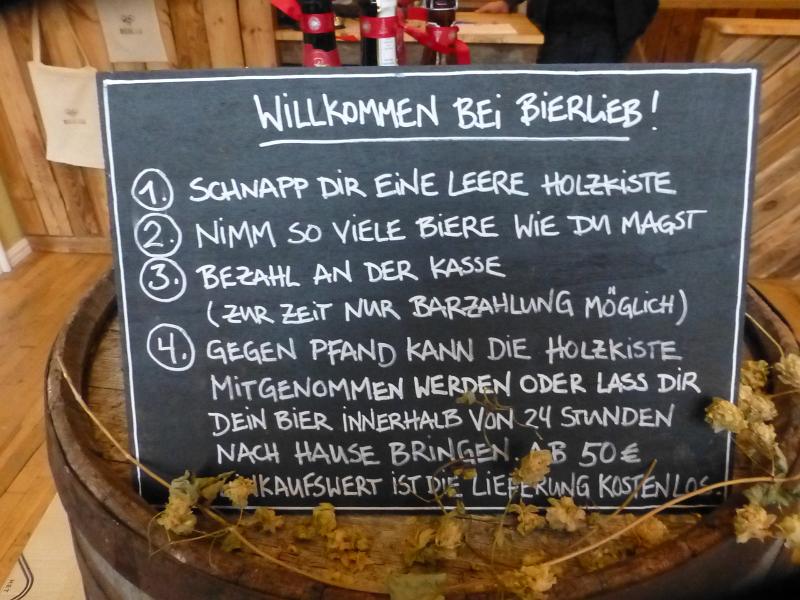 WILLKOMMEN BEI BIERLIEB!
1. SCHNAPP DIR EINE LEERE HOLZKISTE
2. NIMM SO VIELE BIERE WIE DU MAGST
3. BEZAHL AN DER KASSE
(ZUR ZEIT NUR BARZAHLUNG MÖGLICH)
4. GEGEN PFAND KANN DIE HOLZKISTE
MITGENOMMEN WERDEN ODER LASS DIR
DEIN BIER INNERHALB VON 24 STUNDEN
NACH HAUSE BRINGEN. AB 50€
EINKAUFSWERT IST DIE LIEFERUNG KOSTENLOS.